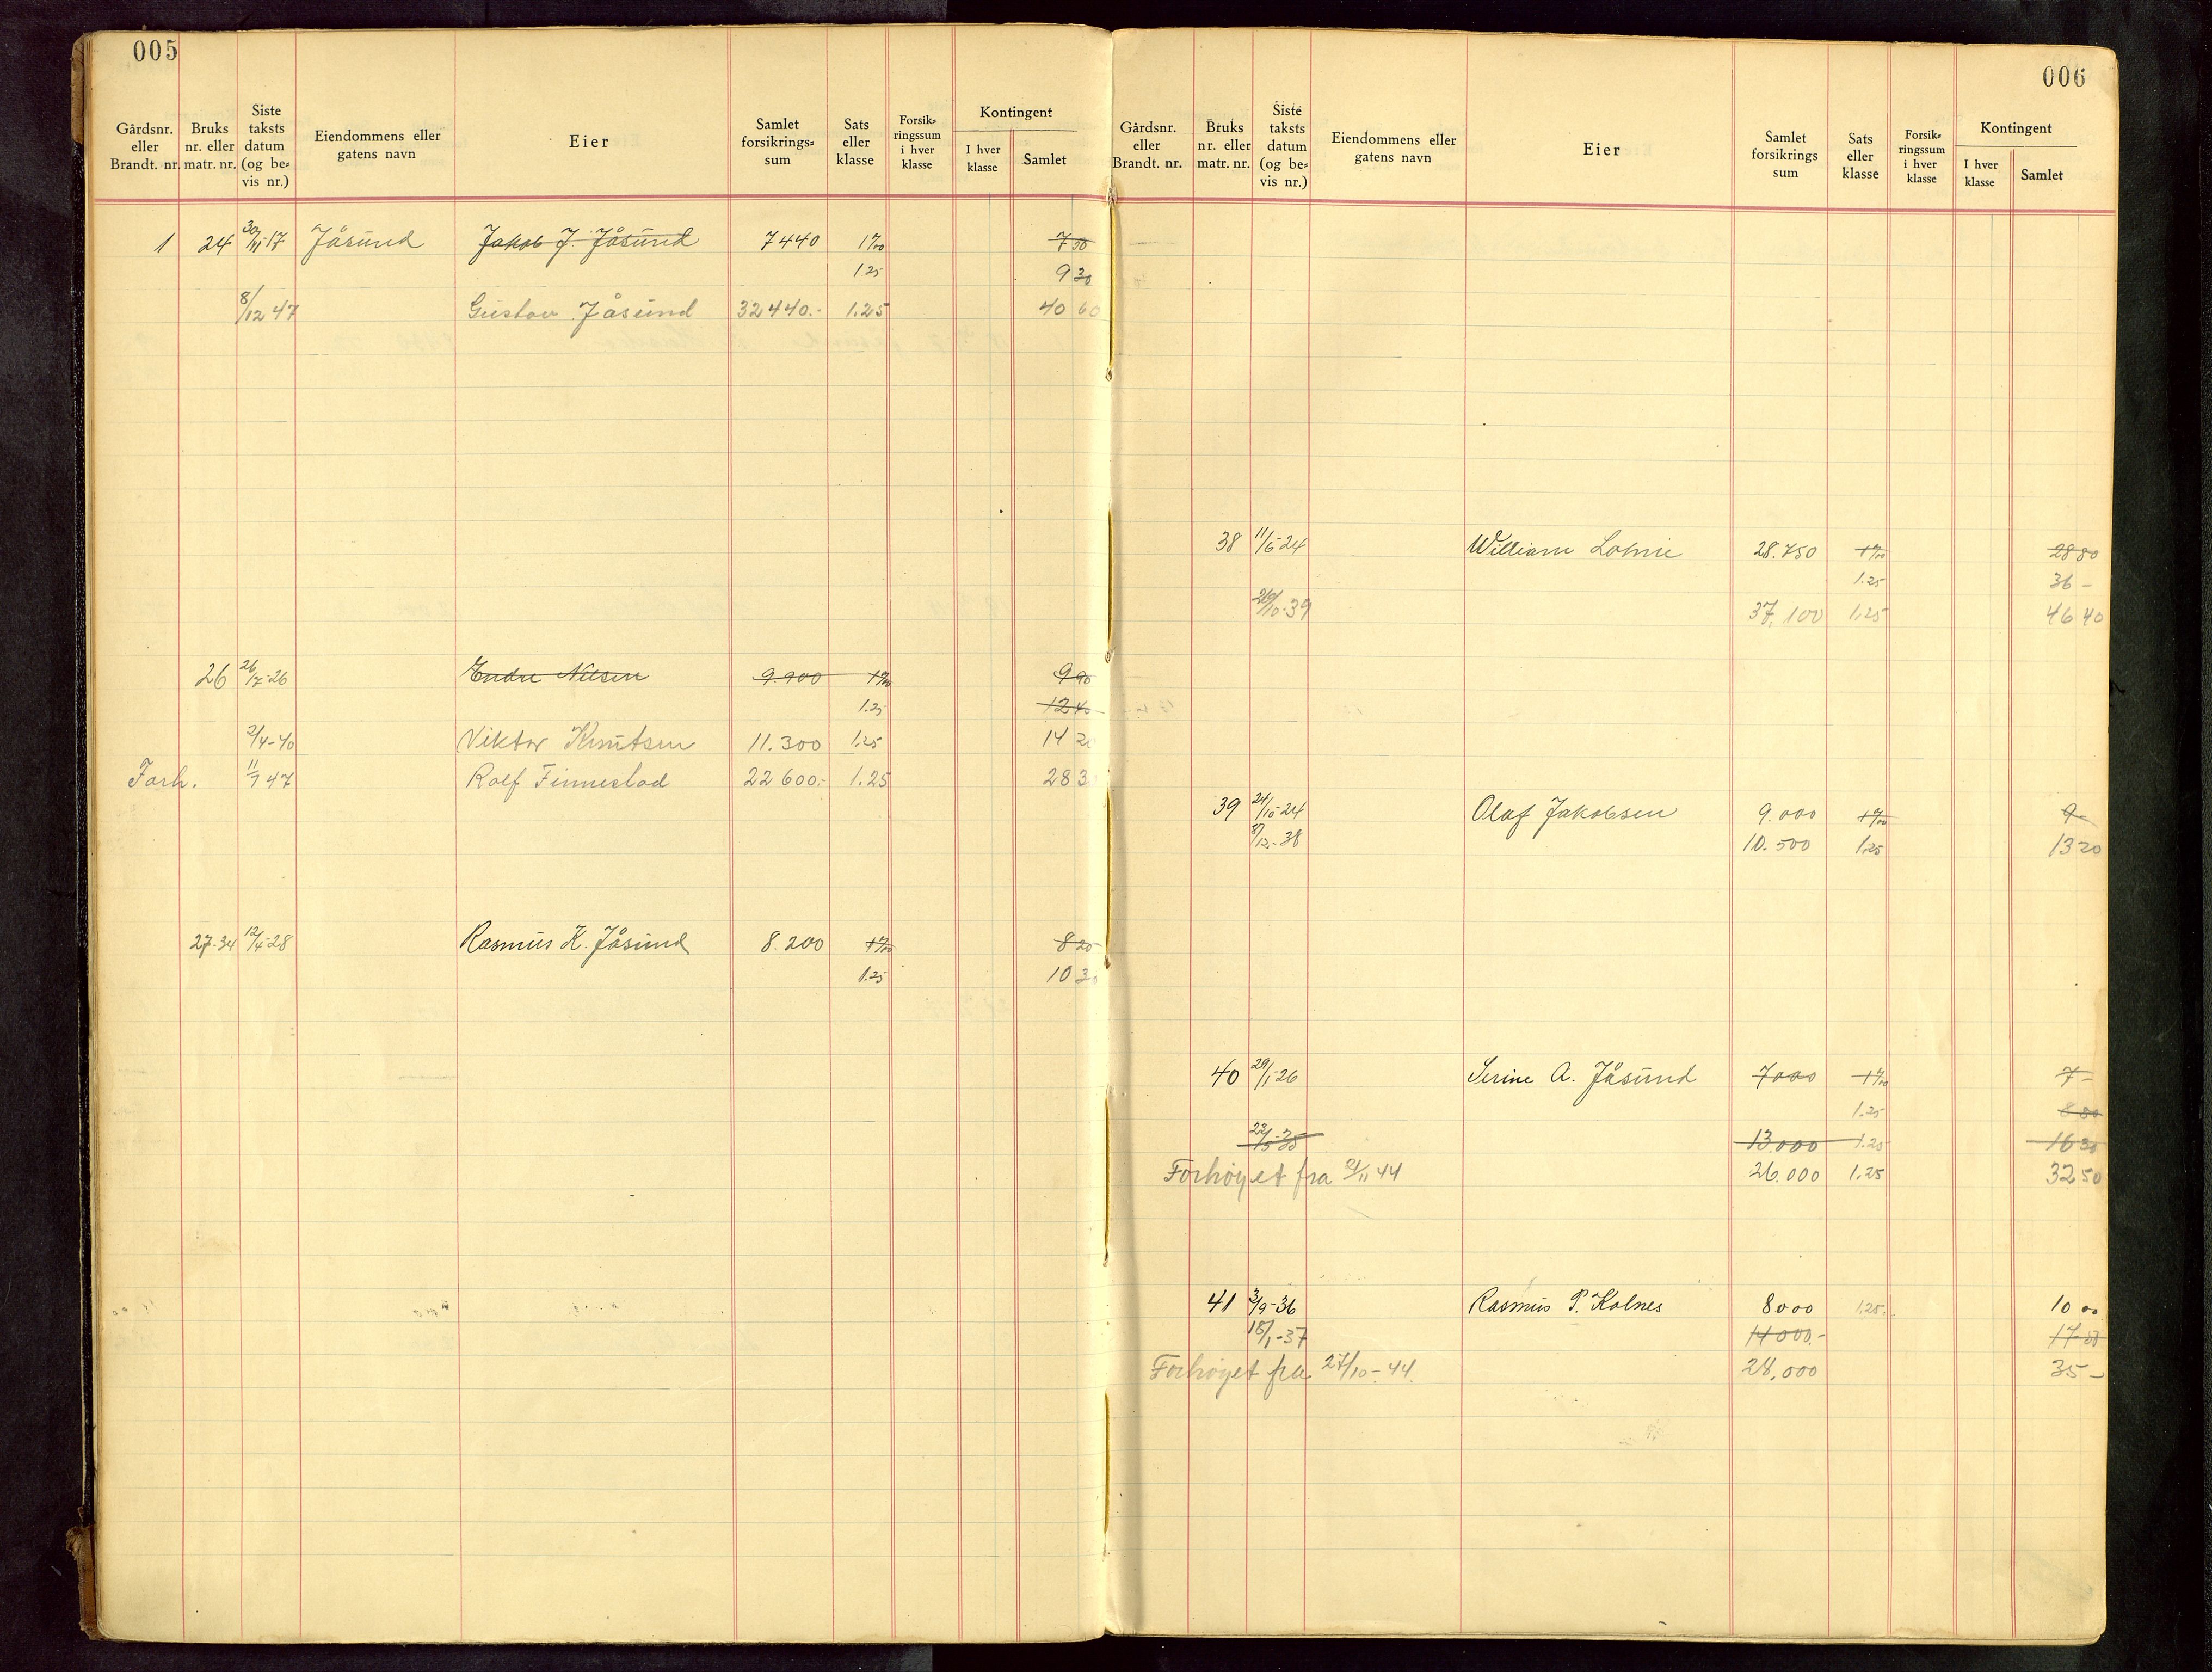 005
Gårdsnr. eller Brandt. nr. Bruks nr. eller matr. nr. Siste taksts datum (og bevis nr.) Eiendommens eller gatens navn Eier Samlet forsikrings=sum Sats eller klasse Forsik=ringssum i hver klasse Kontingent I hver klasse Samlet
1 24 30/11 17 Jåsund Jakob J. Jåsund 7440 1 ‰ 7 50
1.25 9 30
8/12 47 Gustav Jåsund 32440.- 1.25 40 60
26 26/7-26 Endre Nilsen 9.900 1 ‰ 9 90
1.25 12 40
2/4-40 Viktor Knutsen 11.300 1.25 14 20
Forh. 11/7 47 Rolf Finnestad 22600.- 1.25 28 3
27-34 12/4-28 Rasmus K. Jåsund 8.200 1 ‰ 8 20
1.25 10 30
006
Gårdsnr. eller Brandt. nr. Bruks nr. eller matr. nr. Siste taksts datum (og be=vis nr.) Eiendommens eller gatens navn Eier Samlet forsikrings sum Sats eller klasse Forsik=ringssum i hver klasse Kontingent I hver klasse Samlet
38 11/6-24 William 28.750 1 ‰ 28 80
1.25 36 -
26/10-39 37.100 1.25 46 40
39 24/10-24 Olaf Jakobsen 9.000 1 ‰ 9-
8/12-38 10.500 1.25 13 20
40 29/1-26 Serine A. Jåsund 7000 1 ‰ 7-
1.25 8 80
22/5-35 13.000 1.25 16 30
Forhøyet fra 44 26.000 1.25 32 50
41 3/9-36 Rasmus P. Kolnes 8000 1.25. 10 00
18/1-37 14000.-
Forhøyet fra 27/10-44. 28.000 35-